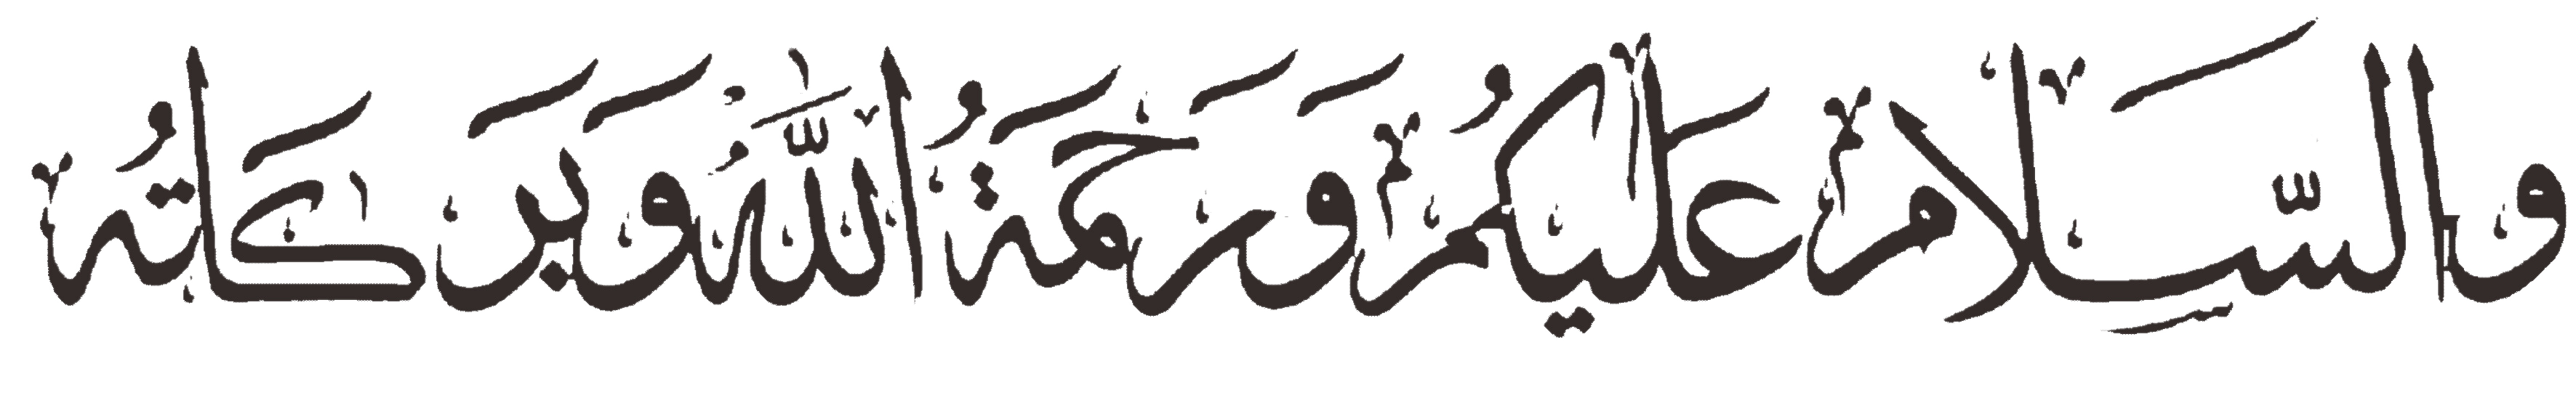 والسَّلام عَلَيْكُم وَرَحْمَةُ اللّٰهُ وَبَرَكَاتُهُ